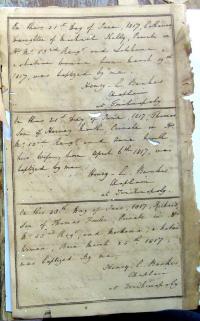 On this 21st Day of June, 1817, Catherine
Daughter of Michael Kelly, Private in
H. M. 53rd Regt. and
a Native Woman born March 19th
1817, was baptized by me,
Henry C. Bankes
Chaplain
at Trichinopoly
On this 21st day of June, 1817, Thomas
Son of Private in H.
M. 53rd Regt. and
his Wife, born April 6th 1817, was
baptized by me,
Henry C. Bankes
Chaplain
at Trichinopoly.
On this 28th Day of June, 1817, Richard
Son of Thomas Private in H.
M. 53rd Regt. and a Native
Woman, Born March 25th 1817,
was Baptized By me,
Henry C. Bankes
Chaplain
at Trichinopoly